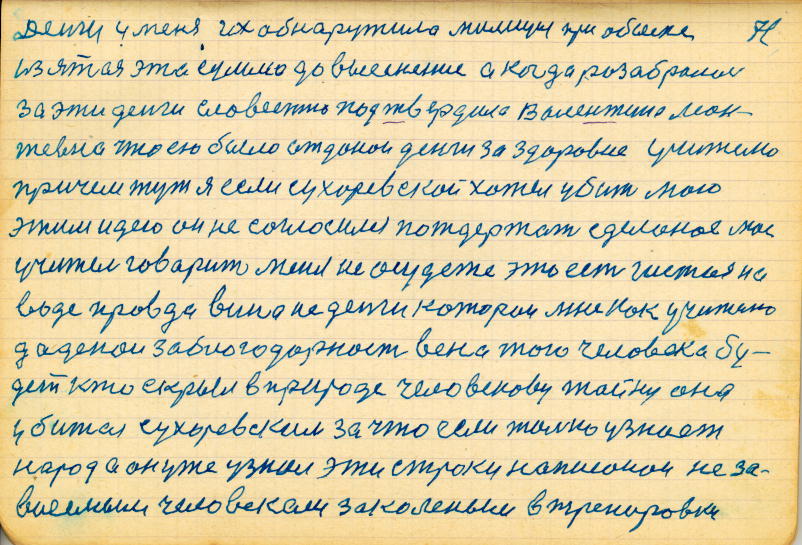 денги у меня их обнаружила милиции при обыске 71
изятая эта сумма до выеснение а когда розабралси
за эти денги словестно подтвердила Валентина Леон-
тевна что ею было отданои денги за здоровие учителю
причем тут я если сухоревской хотел убит мою
этим идею он не согласился потдержат сделаное мое
учител говарит меня не осудеже это ест чистая на
воде правда вина не денги которои мне как учителю
дадепои заблогодарност вена того человека бу-
дет кто скрыл вприроде человекову тайну она
убитая сухоревским за что если толко узнает
народ а он уже узнал эти строки написоной не за-
висемым человекам заколеным втренировки